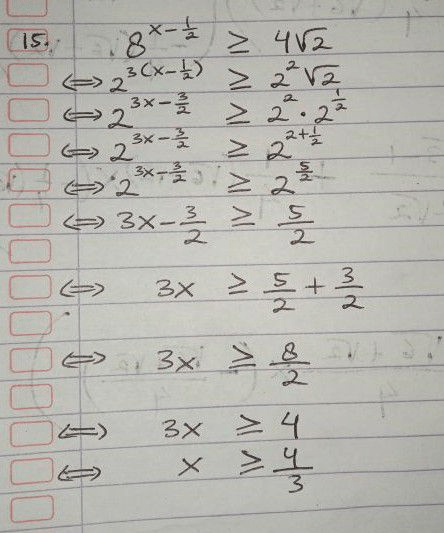 15. 8^{x-\frac{1}{2}} ≥ 4√2
⟺ 2^{3(x-\frac{1}{2})} ≥ 2^{2}√2
⟺ 2^{3x-\frac{3}{2}} ≥ 2^{2} · 2^{\frac{1}{2}}
⟺ 2^{3x-\frac{3}{2}} ≥ 2^{2+\frac{1}{2}}
⟺ 2^{3x-\frac{3}{2}} ≥ 2^{\frac{5}{2}}
⟺ 3x-\frac{3}{2} ≥ \frac{5}{2}
⟺ 3x ≥ \frac{5}{2} + \frac{3}{2}
⟺ 3x ≥ \frac{8}{2}
⟺ 3x ≥ 4
⟺ x ≥ \frac{4}{3}